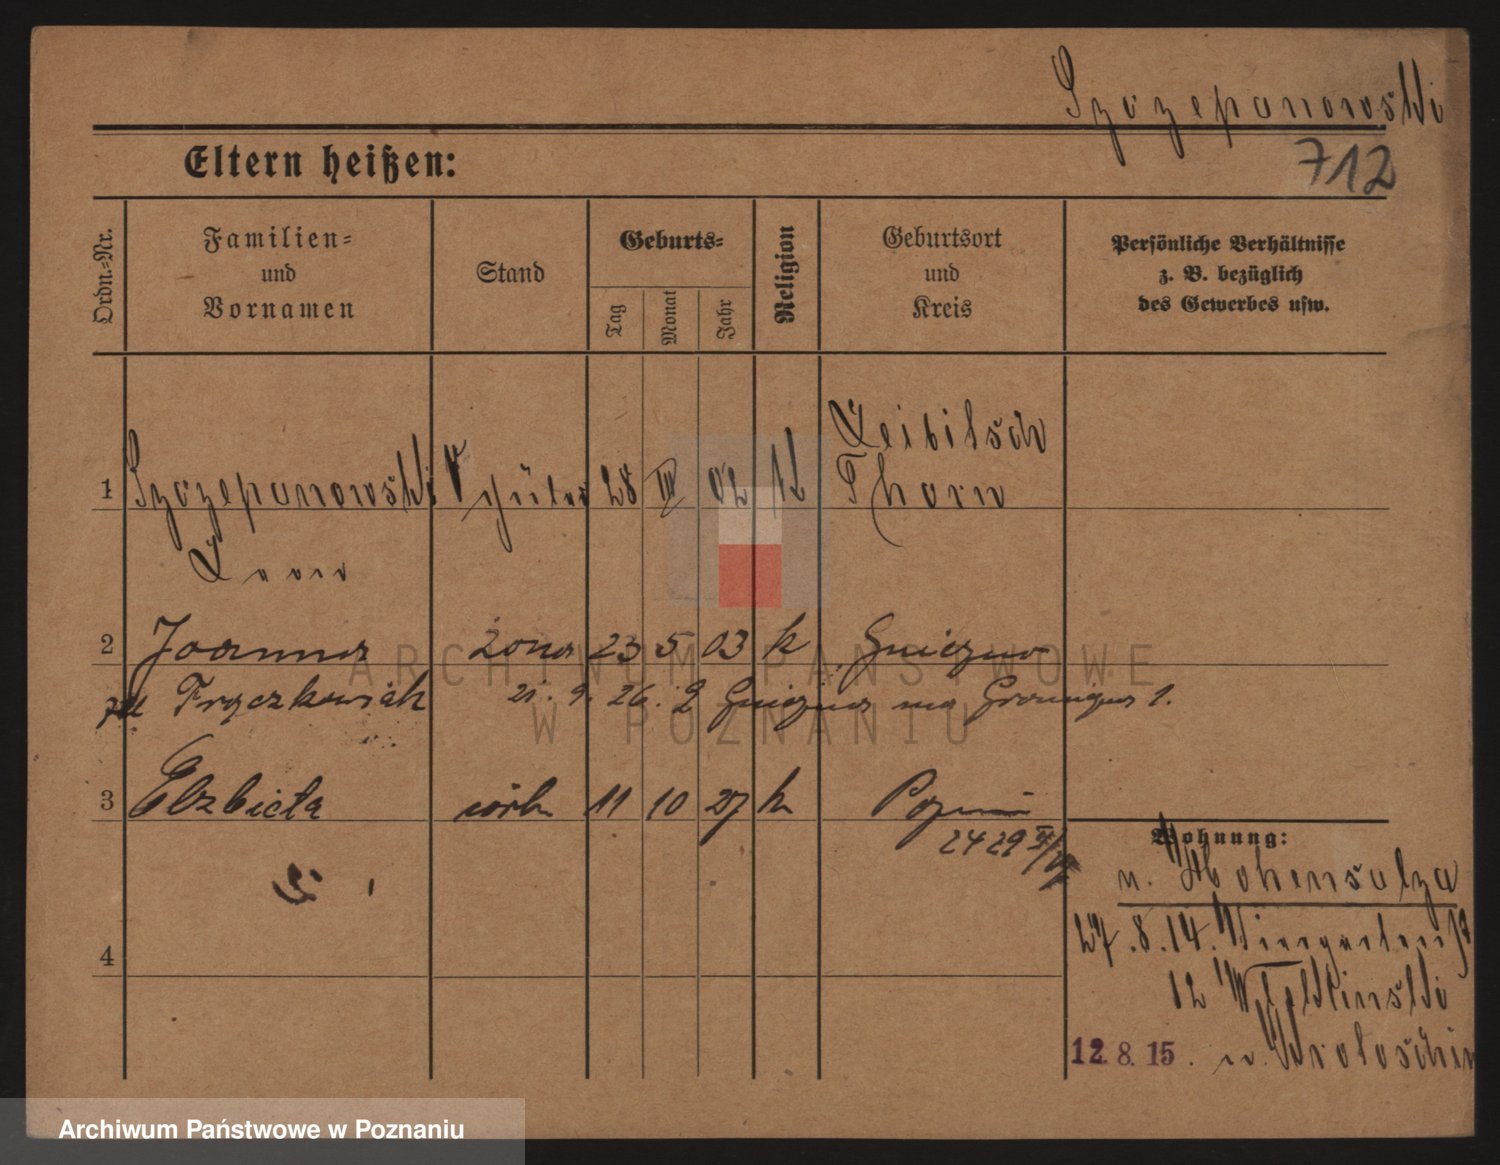 Szczepanowski
712
Eltern heißen:
Ordn.-Nr.
Familien-
und
Vornamen
Stand
Geburts-
Tag
Monat
Jahr
Religion
Geburtsort
und
Kreis
Persönliche Verhältnisse
z. B. bezüglich
des Gewerbes usw.
Leibitsch
1 Szczepanowski Schüler 28 III 02 k Thorn
Leon
2 Joanna żona 23 5 03 k Gniezno
zd Fryczkowiak 21. 9. 26. z Gniezna na
3 Elżbieta córk 11 10 27 k Poznań
24 29
4
Wohnung:
n. Hohensalza
27.8.14.
12
12. 8. 15. n. Krotoschin
ARCHIWUM PAŃSTWOWE
W POZNANIU
Archiwum Państwowe w Poznaniu